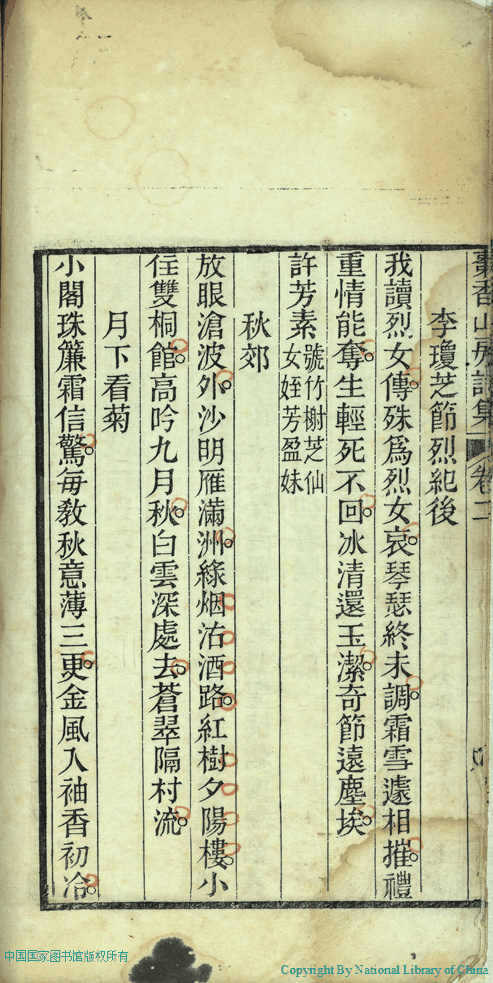 香山房詩集 卷二
李瓊芝節烈紀後
我讀烈女傳殊爲烈女哀琴瑟終未調霜雪遽相摧禮
重情能奪生輕死不回冰清還玉潔奇節遠塵埃
許芳素號竹榭芝仙女姪芳盈妹
秋郊
放眼滄波外沙明雁滿洲綠烟沽酒路紅樹夕陽樓小
住雙桐館高吟九月秋白雲深處去蒼翠隔村流
月下看菊
小閣珠簾霜信驚每敎秋意薄三更金風入袖香初冷
中国国家图书馆版权所有
Copyright By National Library of China